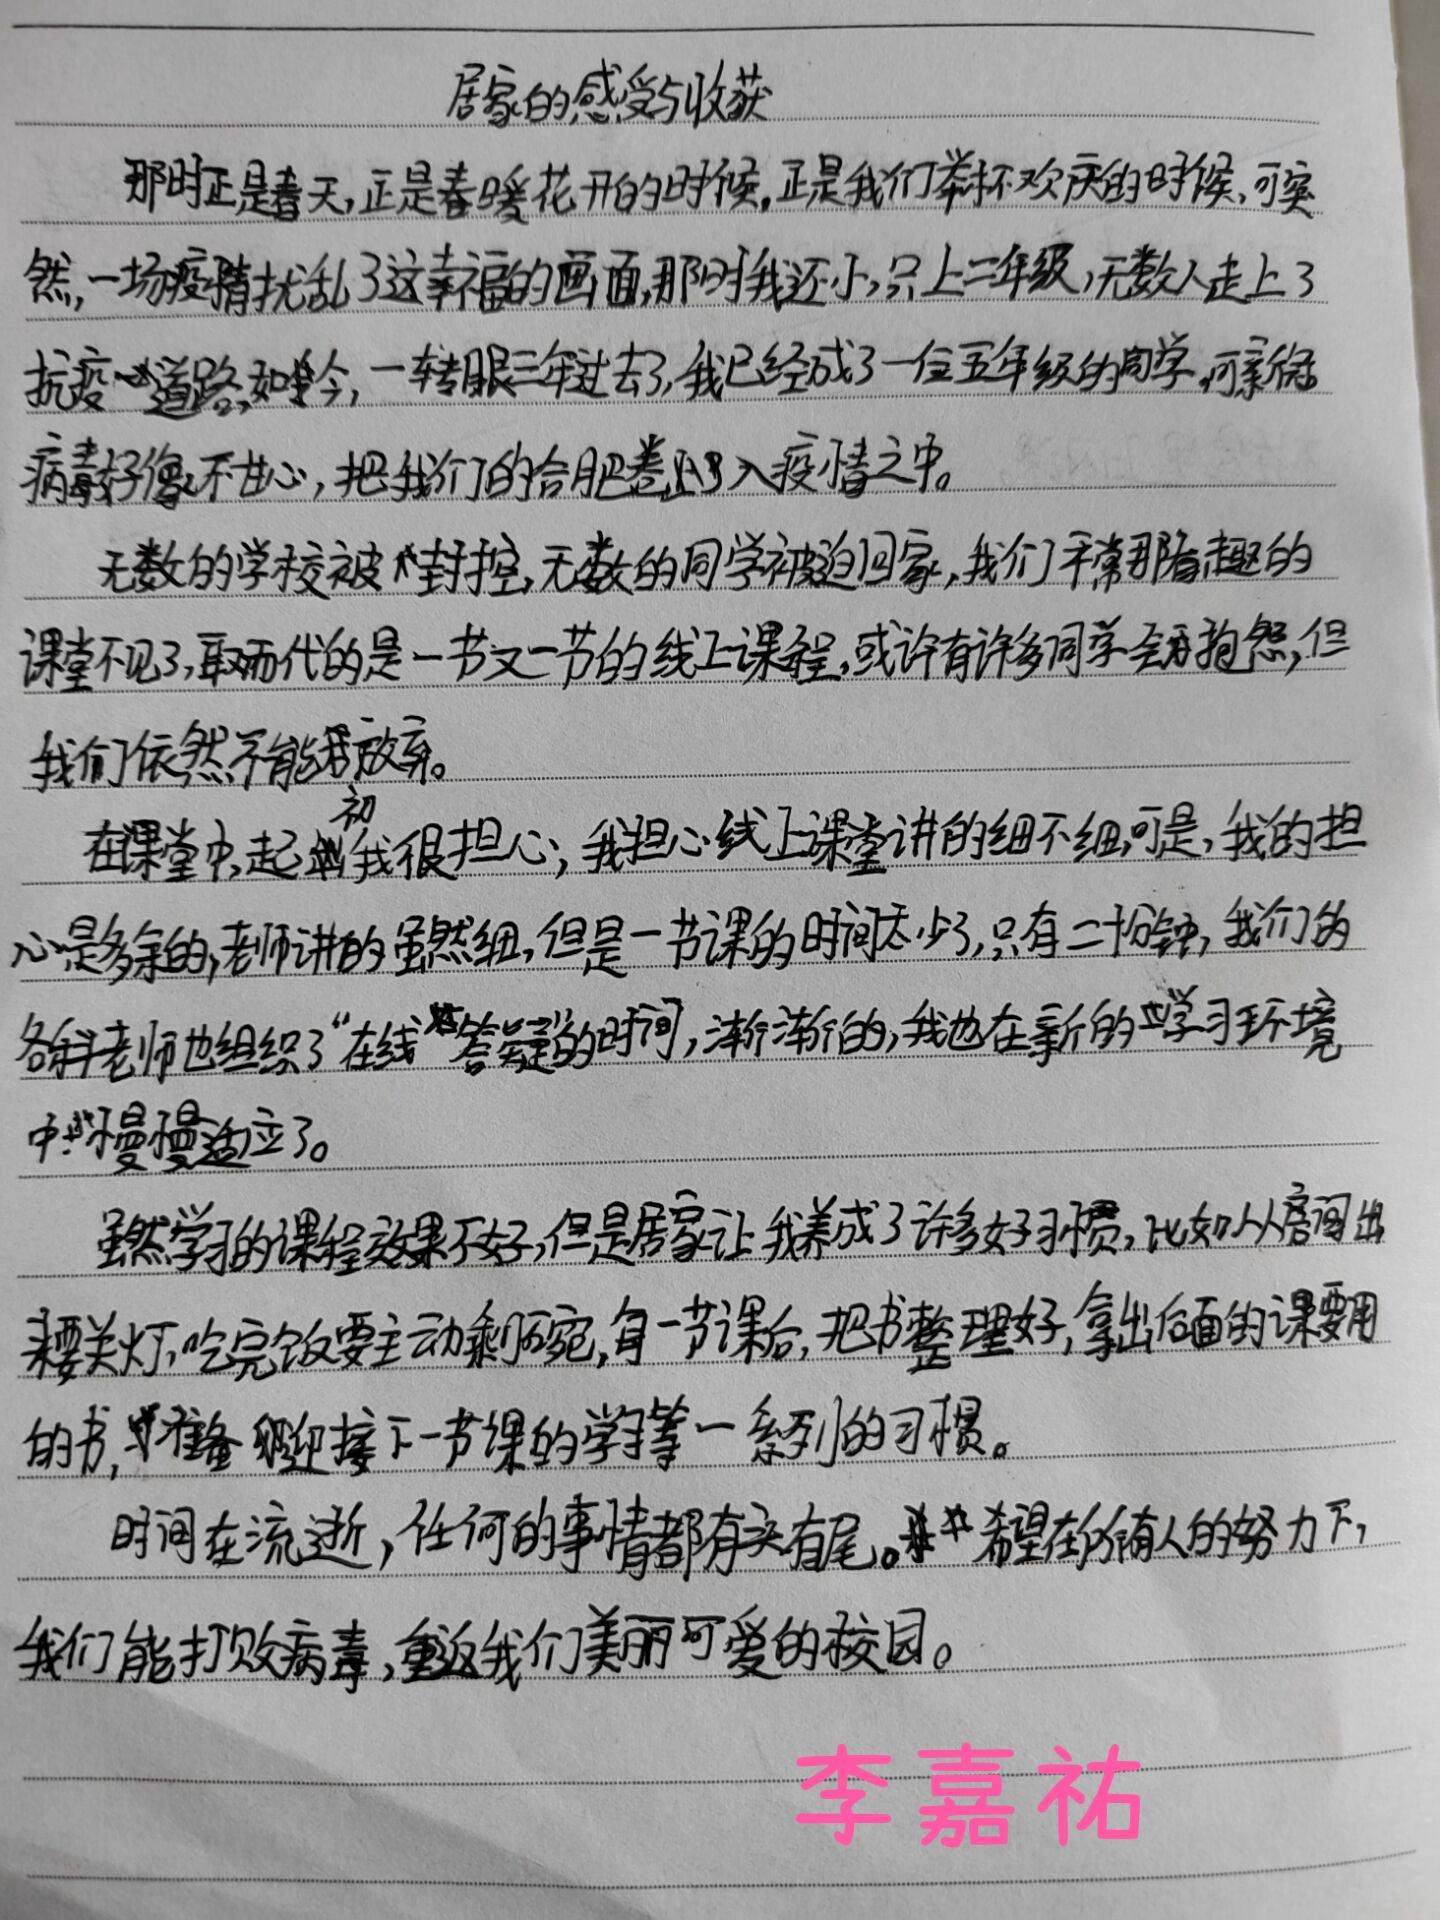 居家的感受与收获
那时正是春天,正是春暖花开的时候,正是我们举杯欢庆的时候,可突
然,一场疫情扰乱了这幸福的画面,那时我还小,只上二年级,无数人走上了
抗疫道路,如今,一转眼三年过去了,我已经成了一位五年级的同学,可新冠
病毒好像不甘心,把我们的合肥卷入疫情之中。
无数的学校被封控,无数的同学被迫回家,我们平常那有趣的
课堂不见了,取而代的是一节又一节的线上课程,或许有许多同学会抱怨,但
我们依然不能放弃。
在课堂中,起初我很担心,我担心线上课堂讲的细不细,可是,我的担
心是多余的,老师讲的虽然细,但是一节课的时间太少了,只有二十分钟,我们的
各科老师也组织了“在线答疑”的时间,渐渐的,我也在新的学习环境
中慢慢适应了。
虽然学习的课程效果不好,但是居家让我养成了许多好习惯,比如人从房间出
来要关灯,吃完饭要主动刷碗,每一节课后,把书整理好,拿出后面的课要用
的书,准备迎接下一节课的学习等一系列的习惯。
时间在流逝,任何的事情都有头有尾。希望在所有人的努力下,
我们能打败病毒,重返我们美丽可爱的校园。
李嘉祐